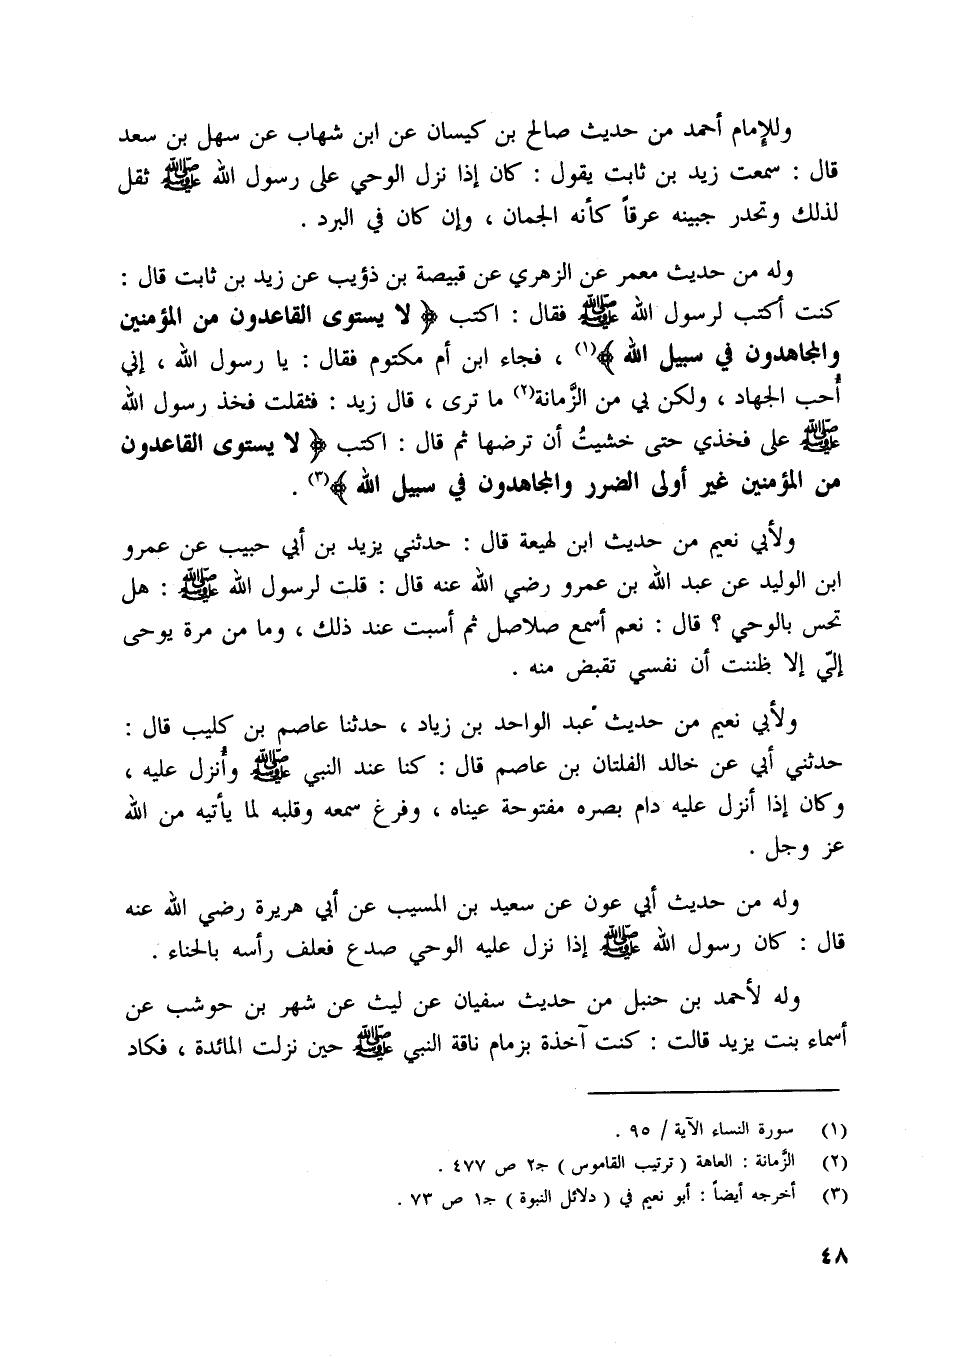 وللإمام أحمد من حديث صالح بن كيسان عن ابن شهاب عن سهل بن سعد
قال : سمعت زيد بن ثابت يقول : كان إذا نزل الوحي على رسول الله ﷺ ثقل
لذلك وتحدر جبينه عرقاً كأنه الجمان ، وإن كان في البرد .
وله من حديث معمر عن الزهري عن قبيصة بن ذؤيب عن زيد بن ثابت قال :
كنت أكتب لرسول الله ﷺ فقال : اكتب ﴿ لا يستوى القاعدون من المؤمنين
والمجاهدون في سبيل الله ﴾(١) ، فجاء ابن أم مكتوم فقال : يا رسول الله ، إني
أُحب الجهاد ، ولكن بي من الزَّمانة(٢) ما ترى ، قال زيد : فثقلت فخذ رسول الله
ﷺ على فخذي حتى خشيتُ أن ترضها ثم قال : اكتب ﴿ لا يستوى القاعدون
من المؤمنين غير أولى الضرر والمجاهدون في سبيل الله ﴾(٣) .
ولأبي نعيم من حديث ابن لهيعة قال : حدثني يزيد بن أبي حبيب عن عمرو
ابن الوليد عن عبد الله بن عمرو رضي الله عنه قال : قلت لرسول الله ﷺ : هل
تحس بالوحي ؟ قال : نعم أسمع صلاصل ثم أسبت عند ذلك ، وما من مرة يوحى
إليّ إلا ظننت أن نفسي تقبض منه .
ولأبي نعيم من حديث عبد الواحد بن زياد ، حدثنا عاصم بن كليب قال :
حدثني أبي عن خالد الفلتان بن عاصم قال : كنا عند النبي ﷺ وأُنزل عليه ،
وكان إذا أنزل عليه دام بصره مفتوحة عيناه ، وفرغ سمعه وقلبه لما يأتيه من الله
عز وجل .
وله من حديث أبي عون عن سعيد بن المسيب عن أبي هريرة رضي الله عنه
قال : كان رسول الله ﷺ إذا نزل عليه الوحي صدع فعلف رأسه بالحناء .
وله لأحمد بن حنبل من حديث سفيان عن ليث عن شهر بن حوشب عن
أسماء بنت يزيد قالت : كنت آخذة بزمام ناقة النبي ﷺ حين نزلت المائدة ، فكاد
(١) سورة النساء الآية / ٩٥ .
(٢) الزَّمانة : العاهة ( ترتيب القاموس ) جـ٢ ص ٤٧٧ .
(٣) أخرجه أيضاً : أبو نعيم في ( دلائل النبوة ) جـ١ ص ٧٣ .
٤٨